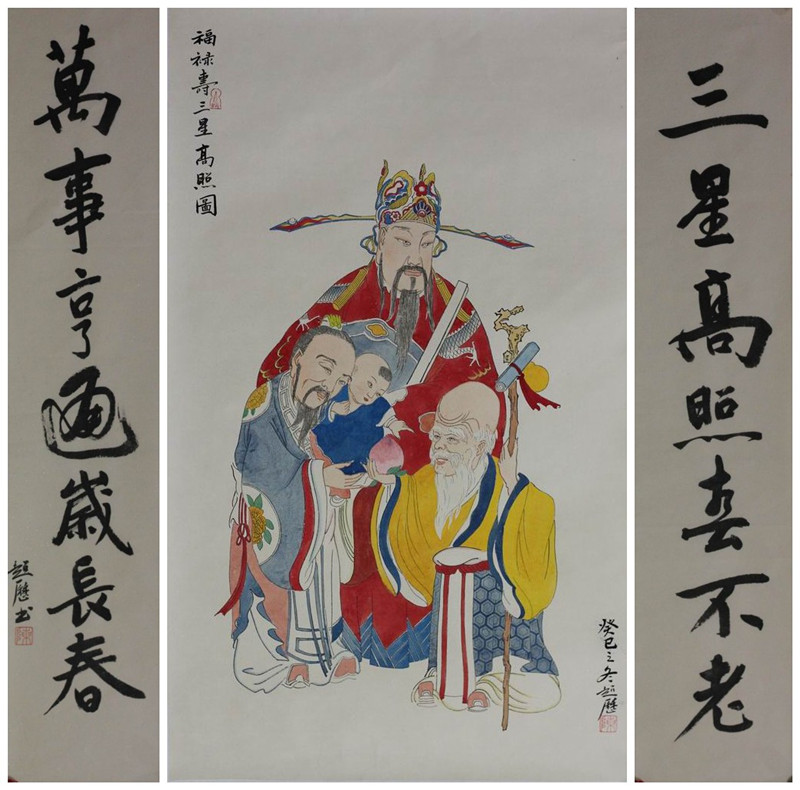 三星高照不老
福禄壽三星高照圖
癸巳之冬超歷
萬事亨通歲長春
超歷书